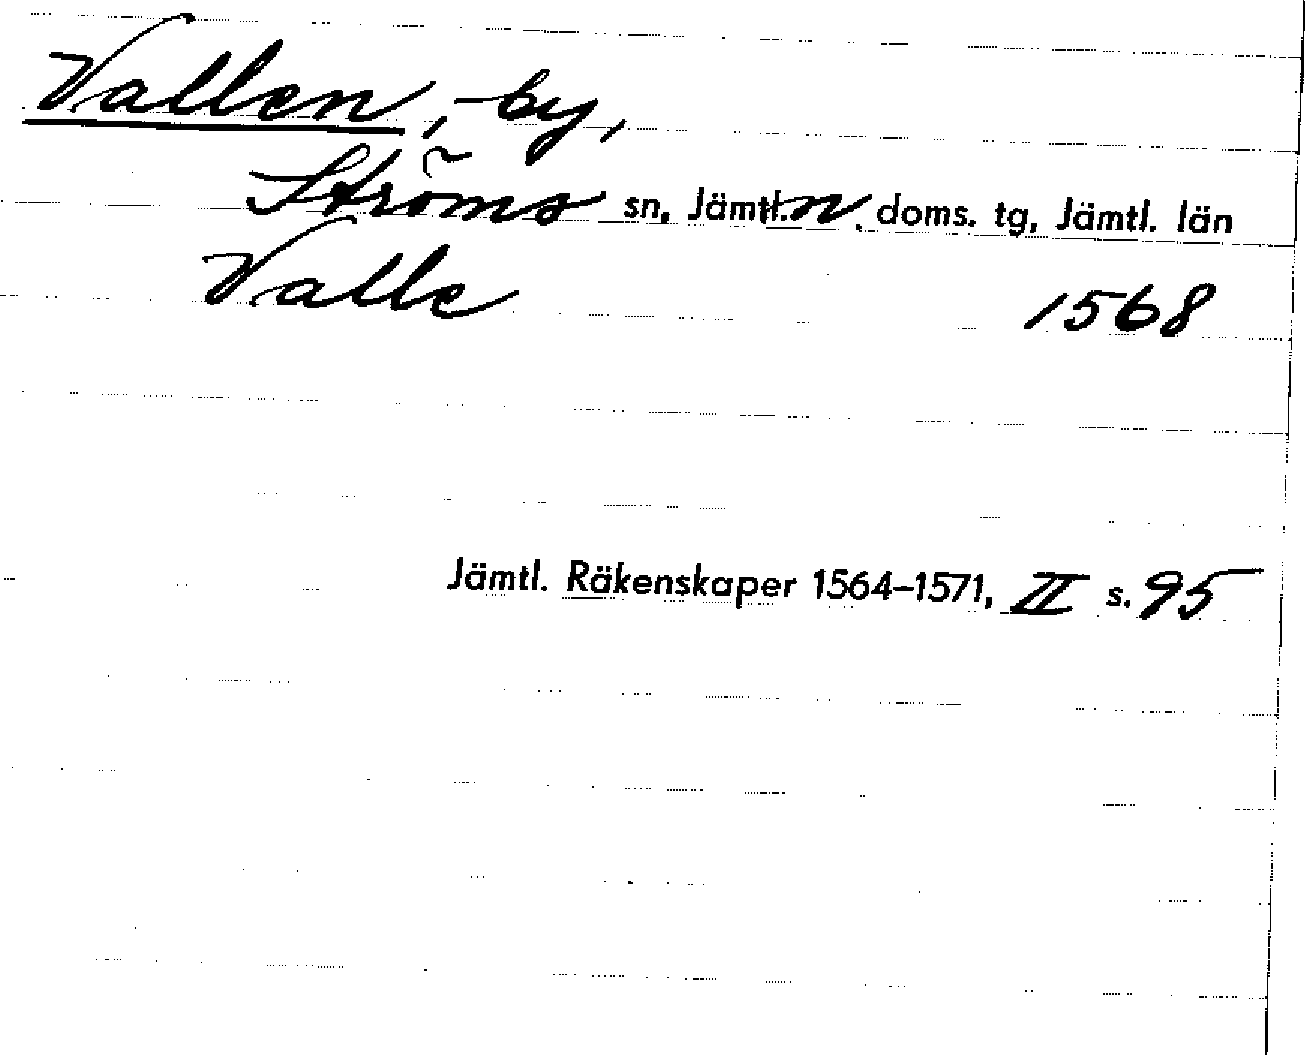 Vallen, by,
Ströms sn, Jämtl. n. doms. tg, Jämtl. län
Valle 1568
Jämtl. Räkenskaper 1564–1571, II s. 95